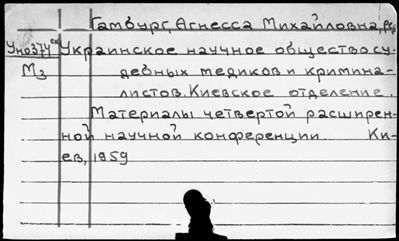 Гамбург, Агнесса Михайловна, ред.
Уно374 Украинское научное общество су-
М3 дебных медиков и кримина-
листов. Киевское отделение.
Материалы четвертой расширен-
ной научной конференции Ки-
ев, 1959